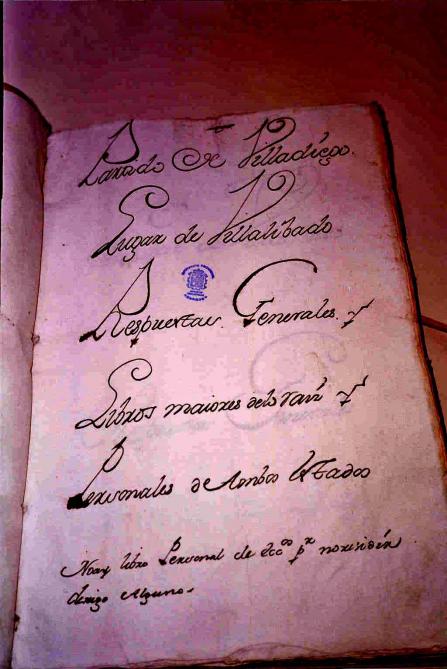 Partido de Villadiego
Lugar de Villalibado
Respuestas Generales y
Libros maiores delo raiz y
Personales de Ambos Estados
No ay libro Personal de ecco pr no residir
clerigo Alguno